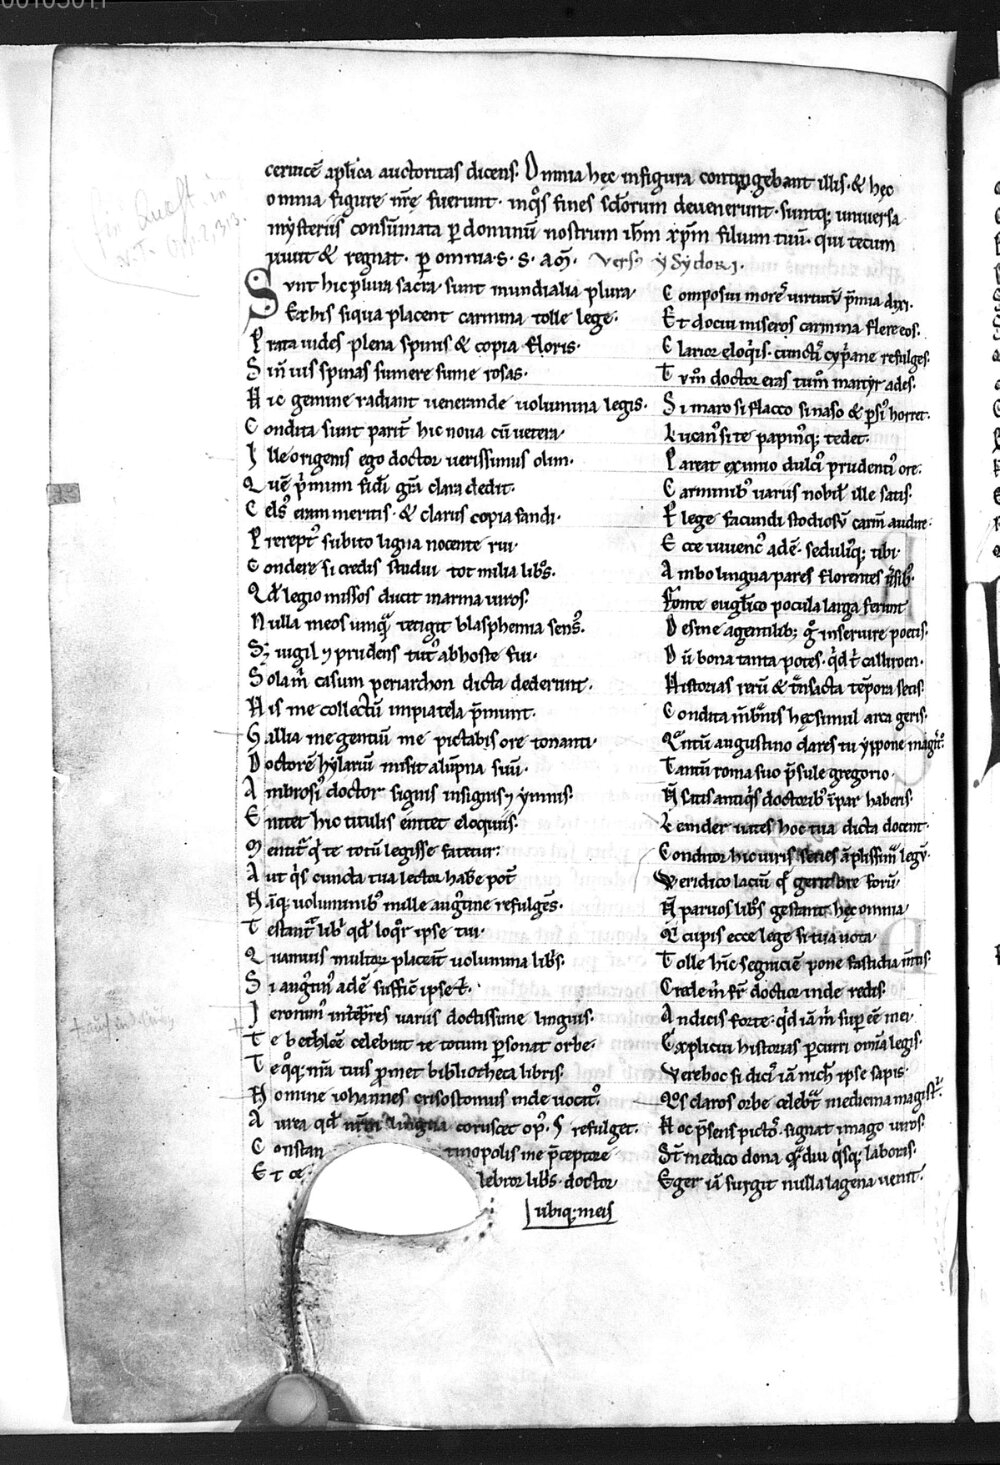 ceruicē aplīca auctoritas dicens. Omnia hęc infigura contingebant illis. & hęc
omnia figure nr̄e fuerunt. inqͦs fines sc̄lorum deuenerunt. suntq; uniuersa
mysteriis consūmata p dominū nostrum ihm̄ xp̄m filium tuū. qui tecum
uiuit & regnat. p omnia.s.s. am̄. Versꝰ ysydori.
Svnt hic plura sacra sunt mundialia plura
Exhis siqua placent carmina tolle lege.
Prata uides plena spinis & copia floris.
Sin̄ uis spinas sumere sume rosas.
Hic gemine radiant uenerande uolumina legis.
Condita sunt parit̄ hic noua cū uetera
Ille origenis ego doctor uerissimus olim.
Quē p̄mum fidi gr̄a clara dedit.
Celsꝰ eram meritis. & clarus copia fandi.
Prereptꝰ subito ligua nocente rui.
Condere si credis studui tot milia libͦs.
Qd̄ legio missos ducit inarma uiros.
Nulla meos umqᷓ tetigit blasphemia sensꝰ.
Sꝫ uigil ⁊ prudens tutꝰ abhoste fui.
Solam̄ casum periarchon dicta dederunt.
His me collectū impia tela p̄munt.
Gallia me gentiū me pictabis ore tonanti.
Doctorē hylariū misit alūpna suū.
Ambrosiꝰ doctor signis insignis ⁊ ymnis.
Enitet hic titulis enitet eloquiis.
Mentit̄ qͥ te totū legisse fatetur.
Aut qͥs cuncta tua lector habe pot̄
Nāq; uoluminibꝰ mille augͥtine refulges.
Testant̄ libͥ qd̄ loqͦr ipse tui.
Quamuis multoꝝ placeat̄ uolumina libͥs.
Si augͥtinꝰ adē sufficit̄ ipse t̄.
Ieronimͤ int̄epres uariis doctissime linguis.
Te bethleē celebrat te totum psonat orbe.
Te qͦq; nr̄a tuis ꝓmet bibliotheca libris.
Nomine iohannes crisostomus inde uocitͦ.
Aurea qd̄ nr̄m lingua coruscet opꝰ. refulget.
Constan tinopolis me p̄ceptore
Et ce lebror libͥs doctor
ubiq; meis
Composui morēs uirtutū p̄mia dixi.
Et docui miseros carmina flere eos.
Clarior eloqͥis. cunctꝭ cyp̄ane refulges.
Tvm̄ doctor eras tum̄ martyr ades.
Si maro si flacco si naso & psiꝰ horret.
Lucanꝰ si te papinꝰq; tedet.
Pareat eximio dulci prudentiꝰ ore.
Carminibꝰ uariis nobil̄ ille satis.
Plege facundi stodiosū carm̄ audire.
Ecce iuuencꝰ adē. seduliꝰq; tibi.
Ambo lingua pares florentes ūsibꝰ.
Fonte euglīco pocula larga ferunt
Desine agentilibꝫ gͦ inseruire poetis.
Dū bona tanta potes. qͥd t̄ callirocn.
Historias rerū & tͣnsacta tēpora seclis
Condita mēbͣnis hęc simul arca geris.
Qͣntū augustino clares tu yppone magist̄.
Tantū roma suo p̄sule gregorio.
N̄ satis antiqͥs doctoribꝰ īpar haberis.
Leander uates hoc tua dicta docent.
Conditor hic uiris series āplissim̄ legū.
Veridico laciū qͥ genere foru.
N̄ paruos libͦs gestant hęc omnia
Qͥ cupis ecce lege si tua uota
Tolle hinc segniciē pone fastidia m̄tis.
Crede m̄ fr̄ doctior inde redis.
An dicis forte. qͥd iā m̄ sup eē mei
Explicui historias pcurri omīa legis.
Vere hoc si diciꝰ iā nich̄ ipse sapis.
Qͦs claros orbe celebrͣt medicina magist̄.
Hoc p̄sens pictoꝰ signat imago uiros.
St̄ medico dona qᷓdiu qͥsq; laboris.
Eger iā surgit nulla lagena uenit.